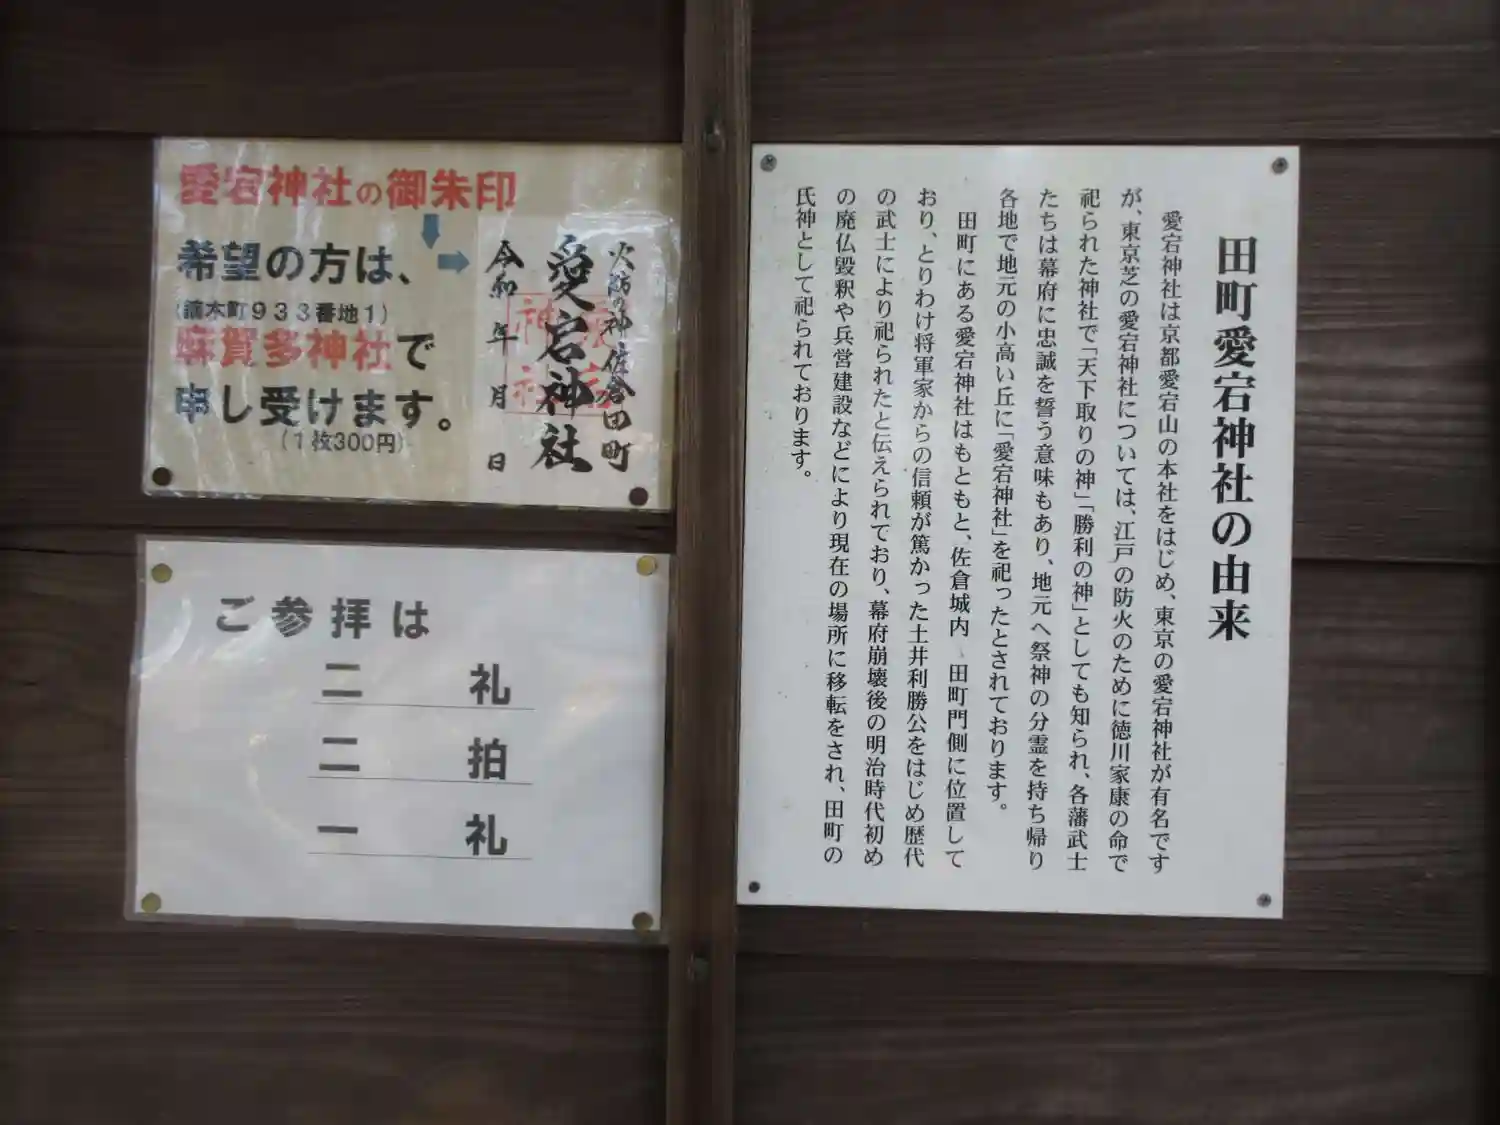 愛宕神社の御朱印
希望の方は、
(鏑木町933番地1)
麻賀多神社で
申し受けます。
(1枚300円)
火防の神 佐倉田町
愛宕神社
令和 年 月 日
ご参拝は
二 礼
二 拍
一 礼
田町愛宕神社の由来
愛宕神社は京都愛宕山の本社をはじめ、東京の愛宕神社が有名です
が、東京芝の愛宕神社については、江戸の防火のために徳川家康の命で
祀られた神社で「天下取りの神」「勝利の神」としても知られ、各藩武士
たちは幕府に忠誠を誓う意味もあり、地元へ祭神の分霊を持ち帰り
各地で地元の小高い丘に「愛宕神社」を祀ったとされております。
田町にある愛宕神社はもともと、佐倉城内 田町門側に位置して
おり、とりわけ将軍家からの信頼が篤かった土井利勝公をはじめ歴代
の武士により祀られたと伝えられており、幕府崩壊後の明治時代初め
の廃仏毀釈や兵営建設などにより現在の場所に移転をされ、田町の
氏神として祀られております。